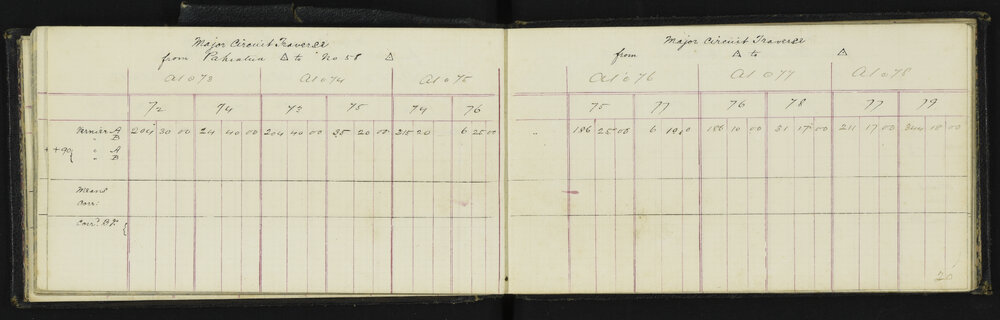 Major Circuit Traverse
from Pahiatua △ to No 58 △
At o 73 At o 74 At o 75
72 74 73 75 74 76
Vernier A 204 30 00 24 40 00 204 40 00 25 20 00 215 20 6 25 00
" B
+ +90 { " A
" B
Means
Corr:
Corr.d B.T. {
Major Circuit Traverse
from △ to △
At o 76 At o 77 At o 78
75 77 76 78 77 79
" 186 25 00 6 10 0 186 10 00 31 17 00 211 17 00 344 18 00